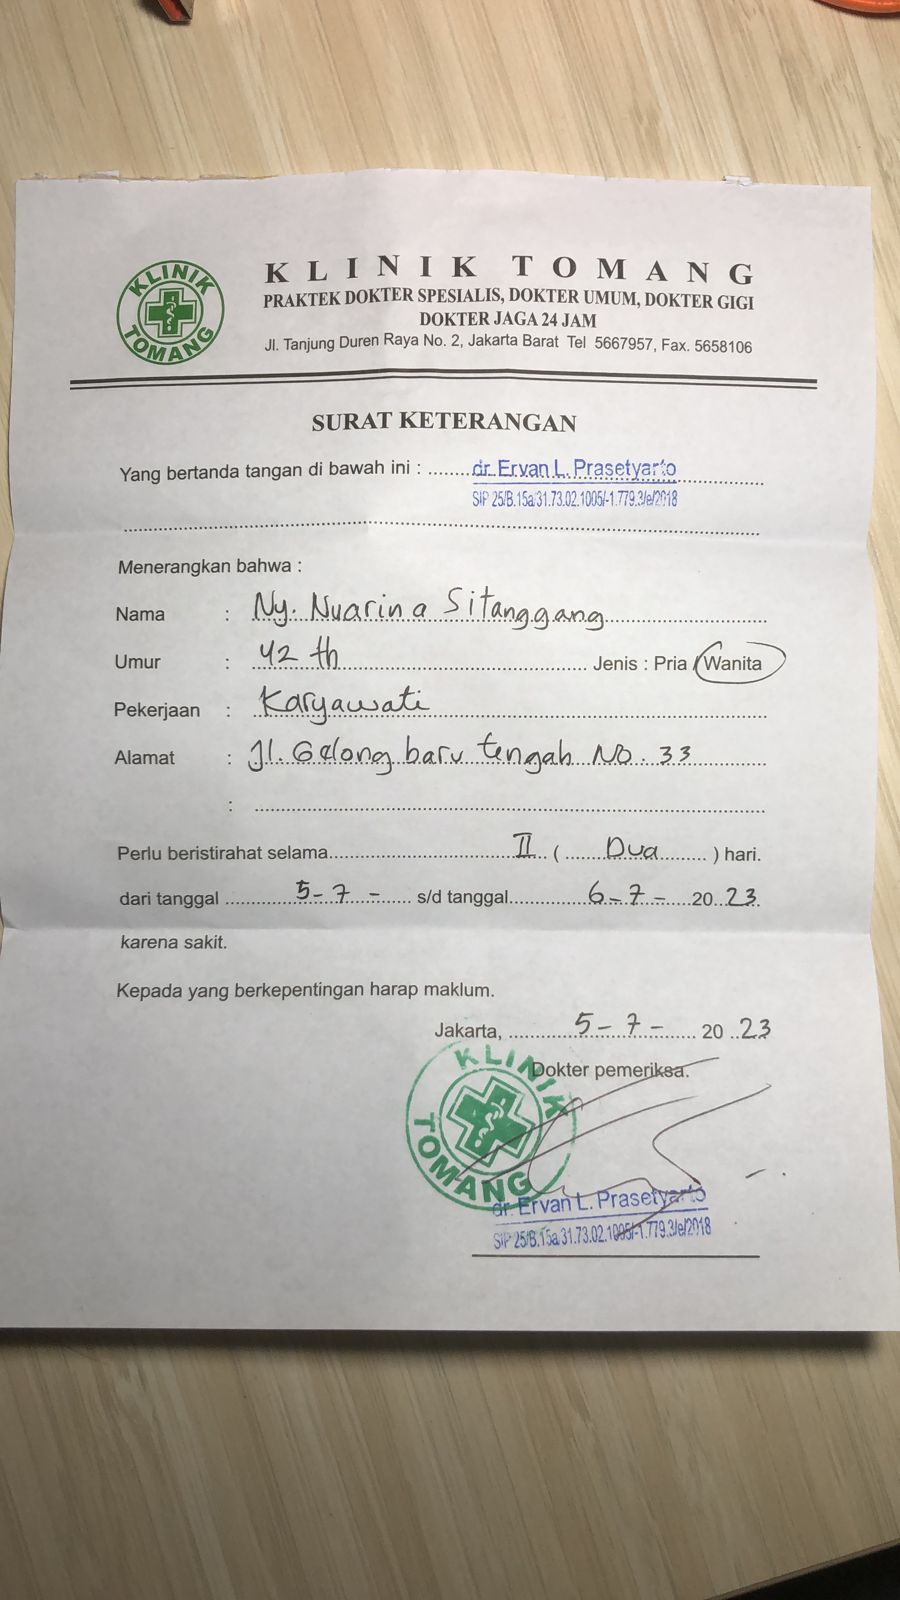 KLINIK TOMANG
KLINIK TOMANG
PRAKTEK DOKTER SPESIALIS, DOKTER UMUM, DOKTER GIGI
DOKTER JAGA 24 JAM
Jl. Tanjung Duren Raya No. 2, Jakarta Barat Tel 5667957, Fax. 5658106
SURAT KETERANGAN
Yang bertanda tangan di bawah ini : ........dr. Ervan L. Prasetyarto
SIP 25/B.15a/31.73.02.1005/-1.779.3/e/2018
Menerangkan bahwa :
Nama : Ny. Nuarina Sitanggang
Umur : 42 th Jenis : Pria / Wanita
Pekerjaan : Karyawati
Alamat : Jl. Gelong baru tengah No. 33
:
Perlu beristirahat selama II ( Dua ) hari.
dari tanggal 5-7- s/d tanggal 6-7- 20 23
karena sakit.
Kepada yang berkepentingan harap maklum.
Jakarta, 5-7- 20 23
Dokter pemeriksa.
KLINIK TOMANG
dr. Ervan L. Prasetyarto
SIP 25/B.15a/31.73.02.1005/-1.779.3/e/2018